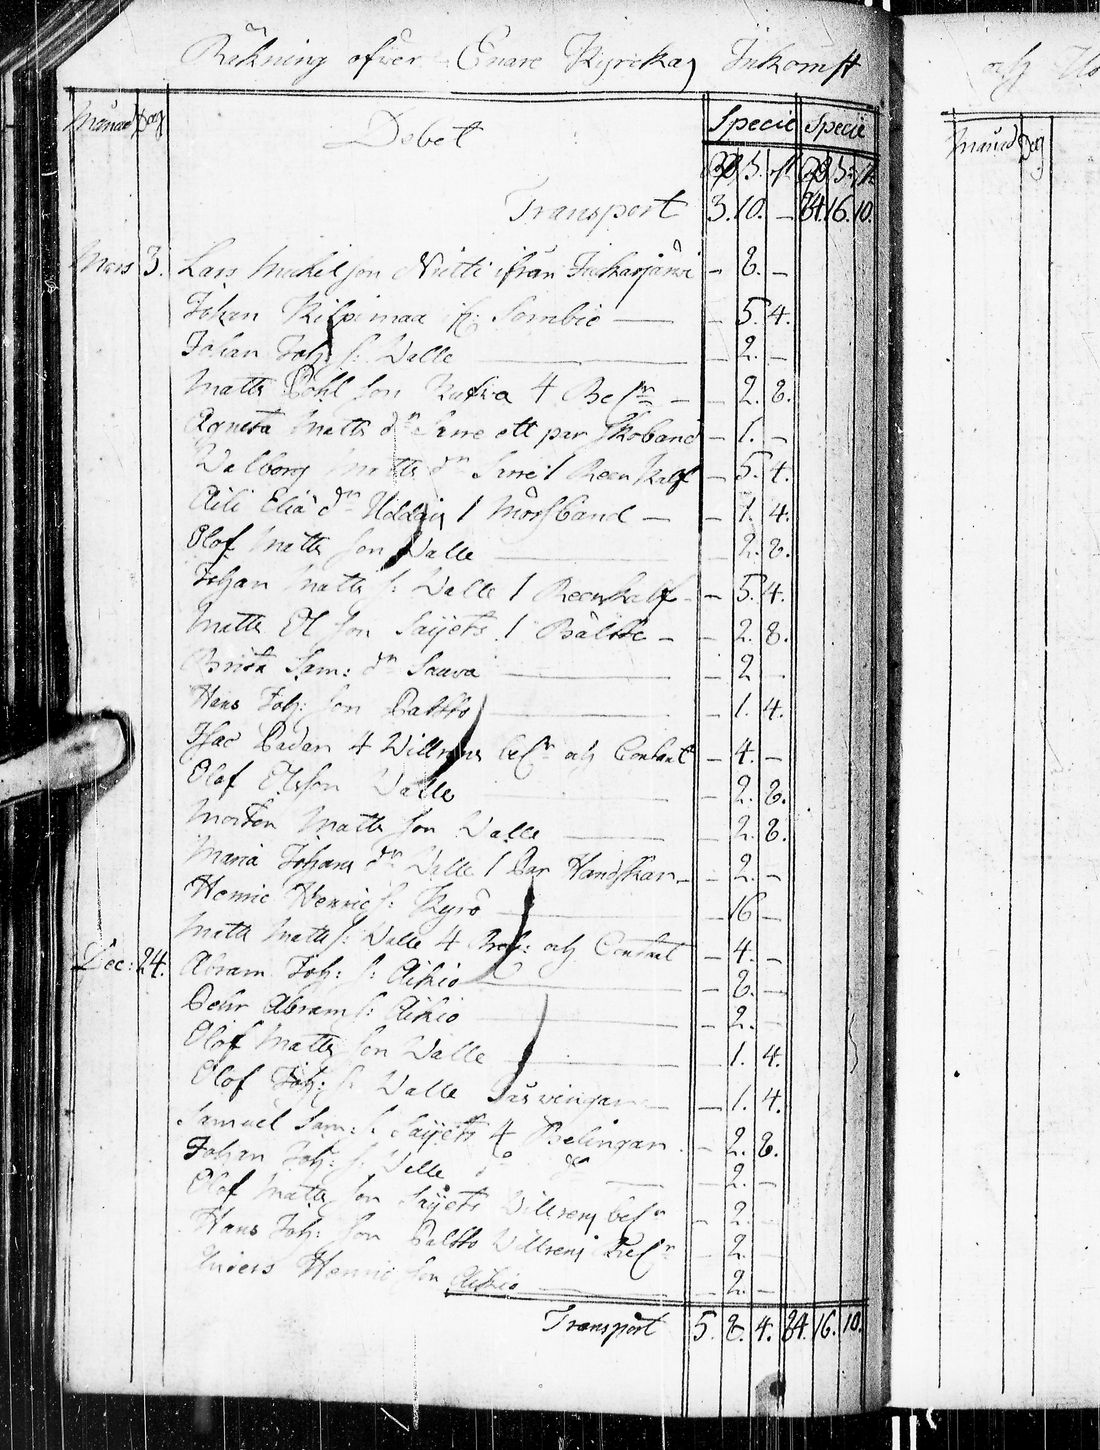 Räkning öfwer Enare Kyrckas Inkomst
Månad Dag Debet Specie Specie
Rd s. r. Rd s. r.
Transport 3. 10. – 84. 16. 10.
Mars 3. Lars Michelson Nutti ifrån – 8. –
Johan Kilpimaa ifr. Sombio – 5. 4.
Johan Joh: s: Walle – 2. –
Matts Påhl son Kufwa 4 – 2. 8.
Agneta Matts dr Sarre ett par skoband – 1. –
Walborg Matts dr Sarre 1 Reenkalf – 5. 4.
Aili Elia dr 1 Mössband – – 1. 4.
Olof Matts son Walle – 2. 8.
Johan Matts s: Walle 1 Reenkalf – – 5. 4.
Matts Ol son Saijets 1 Bälte – – 2. 8.
Brita Sam: dr Sauva – 2
Hans Joh: son Paltto – 1. 4.
Isac Padar 4 Willrens och Contant – 4. –
Olof Olsson Walle – 2. 8.
Morten Matts son Walle – 2. 8.
Maria Johans dr Walle 1 Par Handskar – – 2. –
Henric Henrics: Kyrö – 16 –
Matts Matts s: Walle 4 och Contant – 4. –
Dec: 24. Abram Joh: s: Aikio – 8. –
Pehr Abram s: Aikio – 2. –
Olof Matts son Walle – 1. 4.
Olof Joh: s: Walle – 1. 4.
Samuel Sam: s: Saijets 4 Belingar – 2. 8.
Johan Joh: s: Walle do do – 2. –
Olof Matts son Saijets Willrens – 2. –
Hans Joh: son Paltto Willrens – 2. –
Anders Henric son Aikio – 2. –
Transport 5. 8. 4. 84. 16. 10.
och
Månad Dag